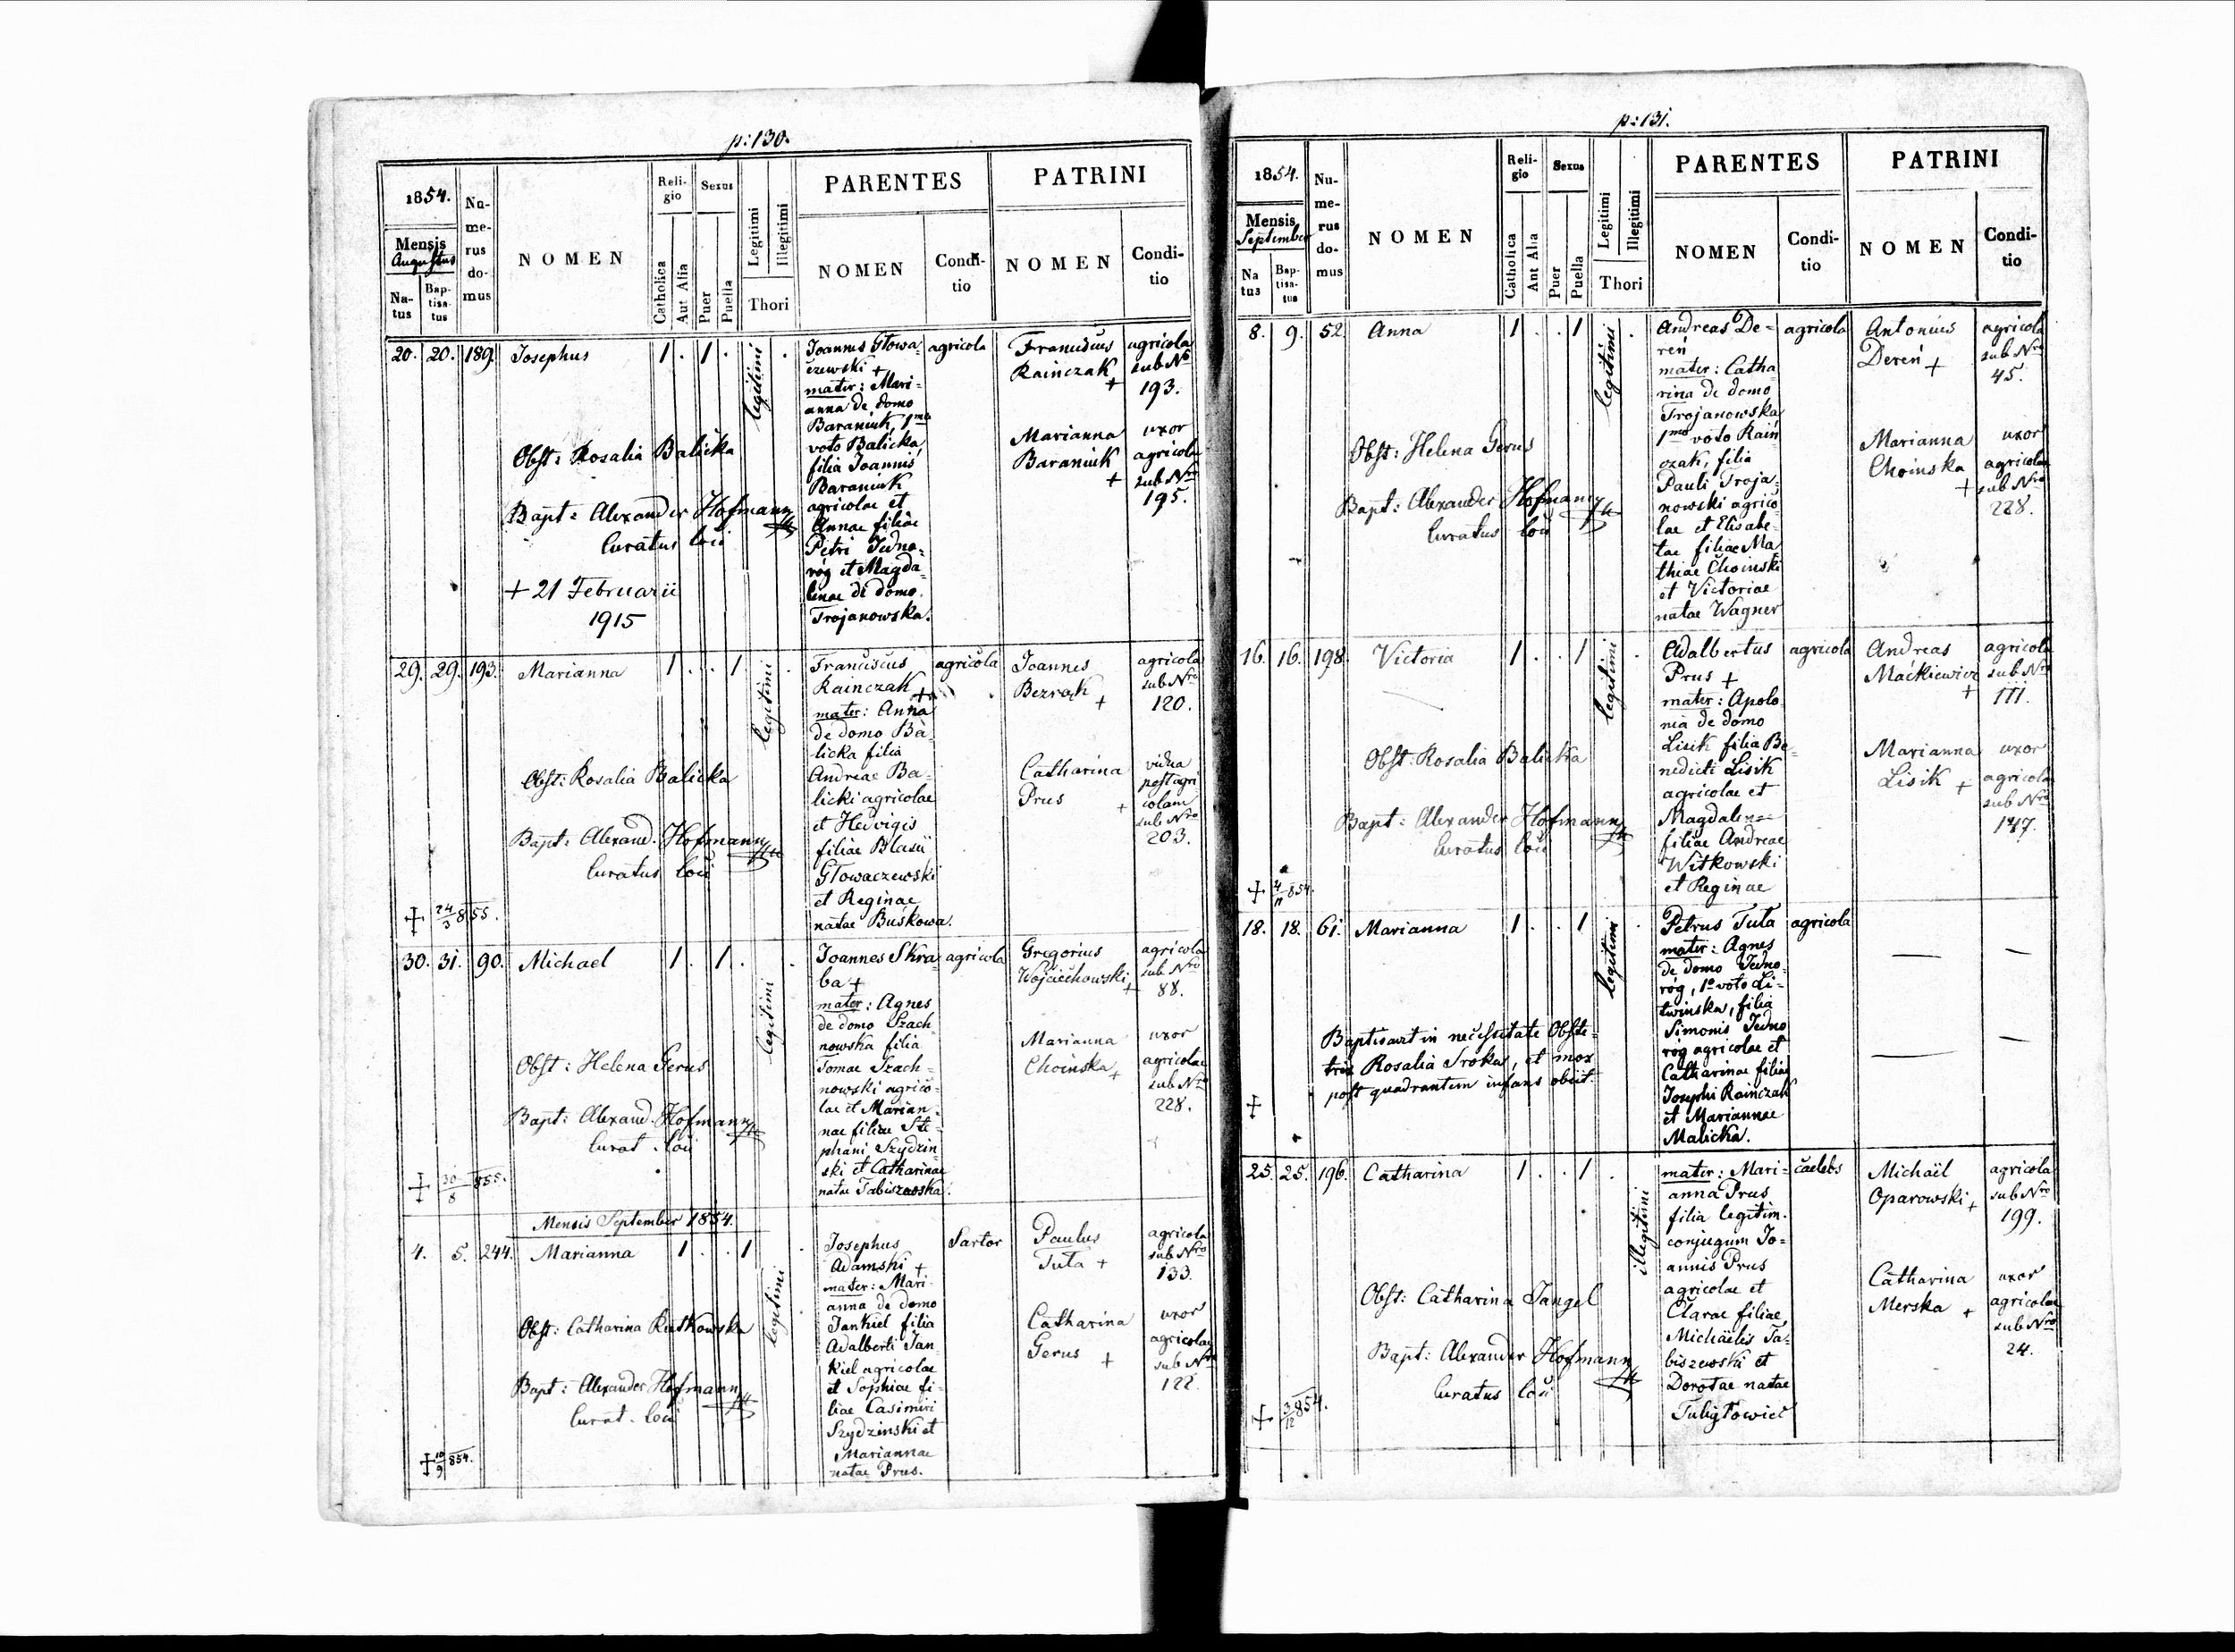 p: 130.
1854.
Mensis
Augustus
Na-
tus
Bap-
tisa-
tus
Nu-
me-
rus
do-
mus
NOMEN
Reli-
gio
Catholica
Aut Alia
Sexus
Puer
Puella
Legitimi
Illegitimi
Thori
PARENTES
NOMEN
Condi-
tio
PATRINI
NOMEN
Condi-
tio
20. 20. 189. Josephus 1 . 1 .
legitimi
Obst: Rosalia Balicka
Bapt: Alexander Hofmann
Curatus loci
+ 21 Februarii
1915
Joannes Głowa-
czewski +
mater: Mari-
anna de domo
Baraniuk, 1mo
voto Balicka,
filia Joannis
Baraniuk
agricolae et
Annae filiae
Petri Jedno-
róg et Magda-
lenae de domo
Trojanowska.
agricola
Franciscus
Rainczak
+
agricola
sub No
193.
Marianna
Baraniuk
+
uxor
agricolae
sub Nro
195.
29. 29. 193. Marianna 1 . . 1 .
legitimi
Obst: Rosalia Balicka
Bapt: Alexand. Hofmann
Curatus loci
+ 24/3 855.
Franciscus
Rainczak +
mater: Anna
de domo Ba-
licka filia
Andreae Ba-
licki agricolae
et Hedvigis
filiae Blasii
Głowaczewski
et Reginae
natae Buśkowa.
agricola
Joannes
Bezrąk
+
agricola
sub Nro
120.
Catharina
Prus +
vidua
post agri
colam
sub Nro
203.
30. 31. 90. Michael 1 . 1 . .
legitimi
Obst: Helena Gerus
Bapt: Alexand. Hofmann
Curat. loci
+ 30/8 855.
Joannes Skra-
ba +
mater: Agnes
de domo Szach
nowska filia
Tomae Szach-
nowski agrico-
lae et Marian-
nae filiae Ste-
phani Szydzin-
ski et Catharinae
natae Tabiszewska.
agricola
Gregorius
Wojciechowski +
agricola
sub Nro
88.
Marianna
Choinska +
uxor
agricolae
sub Nro
228.
Mensis September 1854.
4. 5. 244. Marianna 1 . . 1 .
legitimi
Obst: Catharina Rutkowska
Bapt: Alexander Hofmann
Curat. loci
+ 10/9 854.
Josephus
Adamski +
mater: Mari-
anna de domo
Jankiel filia
Adalberti Jan-
kiel agricolae
et Sophiae fi-
liae Casimiri
Szydzinski et
Mariannae
natae Prus.
Sartor
Paulus
Tuta +
agricola
sub Nro
133.
Catharina
Gerus +
uxor
agricolae
sub Nro
122.
p: 131.
1854.
Mensis
September
Na
tus
Bap-
tisa-
tus
Nu-
me-
rus
do-
mus
NOMEN
Reli-
gio
Catholica
Aut Alia
Sexus
Puer
Puella
Legitimi
Illegitimi
Thori
PARENTES
NOMEN
Condi-
tio
PATRINI
NOMEN
Condi-
tio
8. 9. 52. Anna 1 . . 1 .
legitimi
Obst: Helena Gerus
Bapt: Alexander Hofmann
Curatus loci
Andreas De-
reń
mater: Catha-
rina de domo
Trojanowska
1mo voto Rain
czak, filia
Pauli Troja-
nowski agrico-
lae et Elisabe-
tae filiae Ma-
thiae Choinski
et Victoriae
natae Wagner
agricola
Antonius
Dereń +
agricola
sub Nro
45.
Marianna
Choinska
+
uxor
agricolae
sub Nro
228.
16. 16. 198. Victoria 1 . . 1 .
legitimi
Obst: Rosalia Balicka
Bapt: Alexander Hofmann
Curatus loci
+ 4/11 854.
Adalbertus
Prus +
mater: Apolo
nia de domo
Lisik filia Be-
nedicti Lisik
agricolae et
Magdalenae
filiae Andreae
Witkowski
et Reginae
agricola
Andreas
Maćkiewicz
+
agricola
sub Nro
111.
Marianna
Lisik +
uxor
agricolae
sub Nro
147.
18. 18. 61. Marianna 1 . . 1 .
legitimi
Baptisavit in necessitate Obste-
trix Rosalia Sroka, et mox
post quadrantem infans obiit.
+
Petrus Tuta
mater: Agnes
de domo Jedno-
róg, 1o voto Li-
twinska, filia
Simonis Jedno
róg agricolae et
Catharinae filiae
Josephi Rainczak
et Mariannae
Malicka.
agricola
— —
— —
25. 25. 196. Catharina 1 . . 1 .
illegitimi
Obst: Catharina Jangel
Bapt: Alexander Hofmann
Curatus loci
+ 3/12 854.
mater: Mari-
anna Prus
filia legitim.
conjugum Jo-
annis Prus
agricolae et
Clarae filiae
Michaëlis Ta-
biszewski et
Dorotae natae
Tuligłowicz
caelebs
Michaël
Oparowski +
agricola
sub Nro
199.
Catharina
Merska +
uxor
agricolae
sub Nro
24.